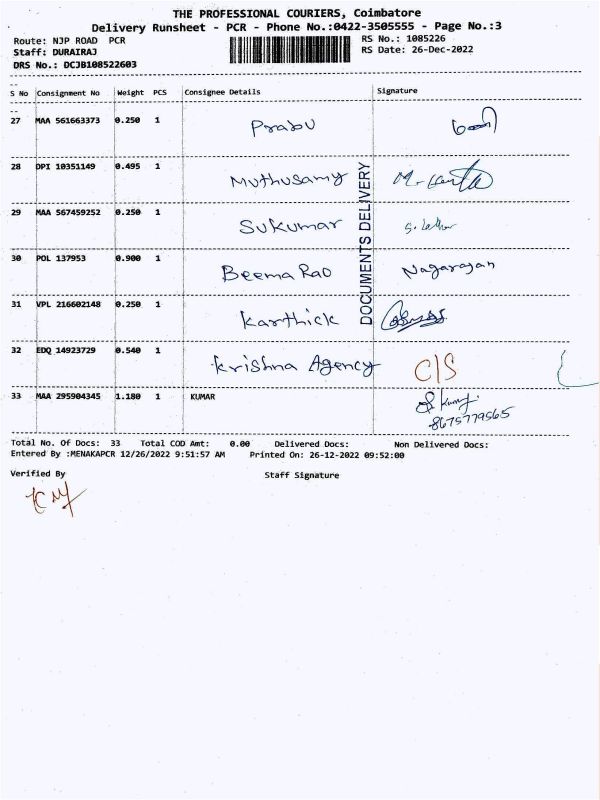 THE PROFESSIONAL COURIERS, Coimbatore
Delivery Runsheet - PCR - Phone No.:0422-3505555 - Page No.:3
Route: NJP ROAD PCR RS No.: 1085226
Staff: DURAIRAJ RS Date: 26-Dec-2022
DRS No.: DCJB108522603
S No Consignment No Weight PCS Consignee Details Signature
27 MAA 561663373 0.250 1 Prabu
28 DPI 10351149 0.495 1 Muthusamy
29 MAA 567459252 0.250 1 Sukumar
30 POL 137953 0.900 1 Beema Rao Nagarajan
31 VPL 216602148 0.250 1 Karthick
32 EDQ 14923729 0.540 1 Krishna Agency C/S
33 MAA 295904345 1.180 1 KUMAR
8675779565
DOCUMENTS DELIVERY
Total No. Of Docs: 33 Total COD Amt: 0.00 Delivered Docs: Non Delivered Docs:
Entered By :MENAKAPCR 12/26/2022 9:51:57 AM Printed On: 26-12-2022 09:52:00
Verified By Staff Signature